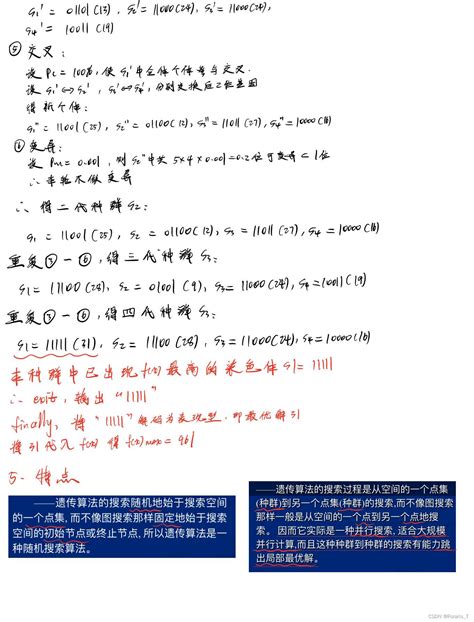 S₁' = 01101 (13), S₂' = 11000 (24), S₃' = 11000 (24),
S₄' = 10011 (19)
⑤ 交叉:
设 Pc = 100%, 使 S₁' 中全体个体参与交叉.
设 S₁' ↔ S₂', S₃' ↔ S₄', 分别交换后2位基因
得新个体:
S₁'' = 11001 (25), S₂'' = 01100 (12), S₃'' = 11011 (27), S₄'' = 10000 (16)
⑥ 变异:
设 Pm = 0.001, 则 中共 5×4×0.001 = 0.2 位可变异 < 1位
∴ 本轮不做变异
∴ 得二代种群 S2:
S₁ = 11001 (25), S₂ = 01100 (12), S₃ = 11011 (27), S₄ = 10000 (16)
重复 ③ — ⑥, 得三代种群 S3:
S1 = 11100 (28), S₂ = 01001 (9), S₃ = 11000 (24), S₄ = 10011 (19)
重复 ③ — ⑥, 得四代种群 S3:
S1 = 11111 (31), S₂ = 11100 (28), S₃ = 11000 (24), S₄ = 10000 (16)
本种群中已出现 f(x) 最高的染色体 S1 = 11111
∴ exit, 输出 "11111"
finally, 将 "11111" 解码为表现型, 即最优解31
将31代入 f(x) 得 f(x)max = 961
5. 特点
——遗传算法的搜索随机地始于搜索空间
的一个点集, 而不像图搜索那样固定地始于搜索
空间的初始节点或终止节点, 所以遗传算法是一
种随机搜索算法。
——遗传算法的搜索过程是从空间的一个点集
(种群)到另一个点集(种群)的搜索,而不像图搜索
那样一般是从空间的一个点到另一个点地搜
索。 因而它实际是一种并行搜索, 适合大规模
并行计算, 而且这种种群到种群的搜索有能力跳
出局部最优解。
CSDN @Fours_T